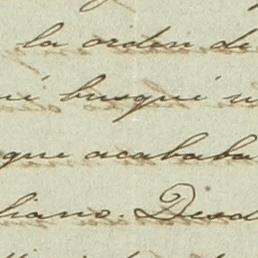 la orden de
busqué
que acababa
liano. Desd